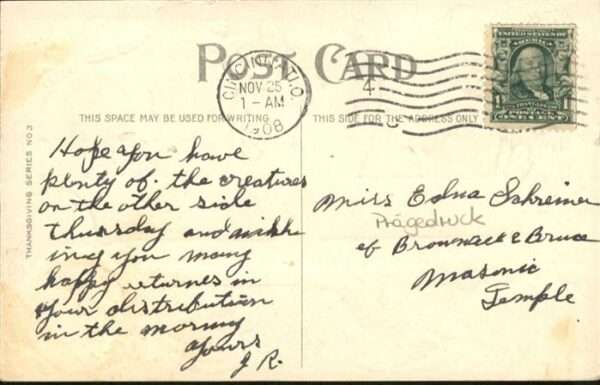 POST CARD
CINCINNATI, O.
NOV 25
1-AM
1908
4
C
UNITED STATES OF AMERICA
1 POSTAGE 1
ONE CENT
THIS SPACE MAY BE USED FOR WRITING
THIS SIDE FOR THE ADDRESS ONLY
THANKSGIVING SERIES NO 3
Hope you have
plenty of the creatures
on the other side
thursday and wishe
ing you many
happy returnes in
your distribution
in the morning
yours
J R.
Miss Edna Schreiner
Prägedruck
of Brownell & Bruce
Masonic
Temple